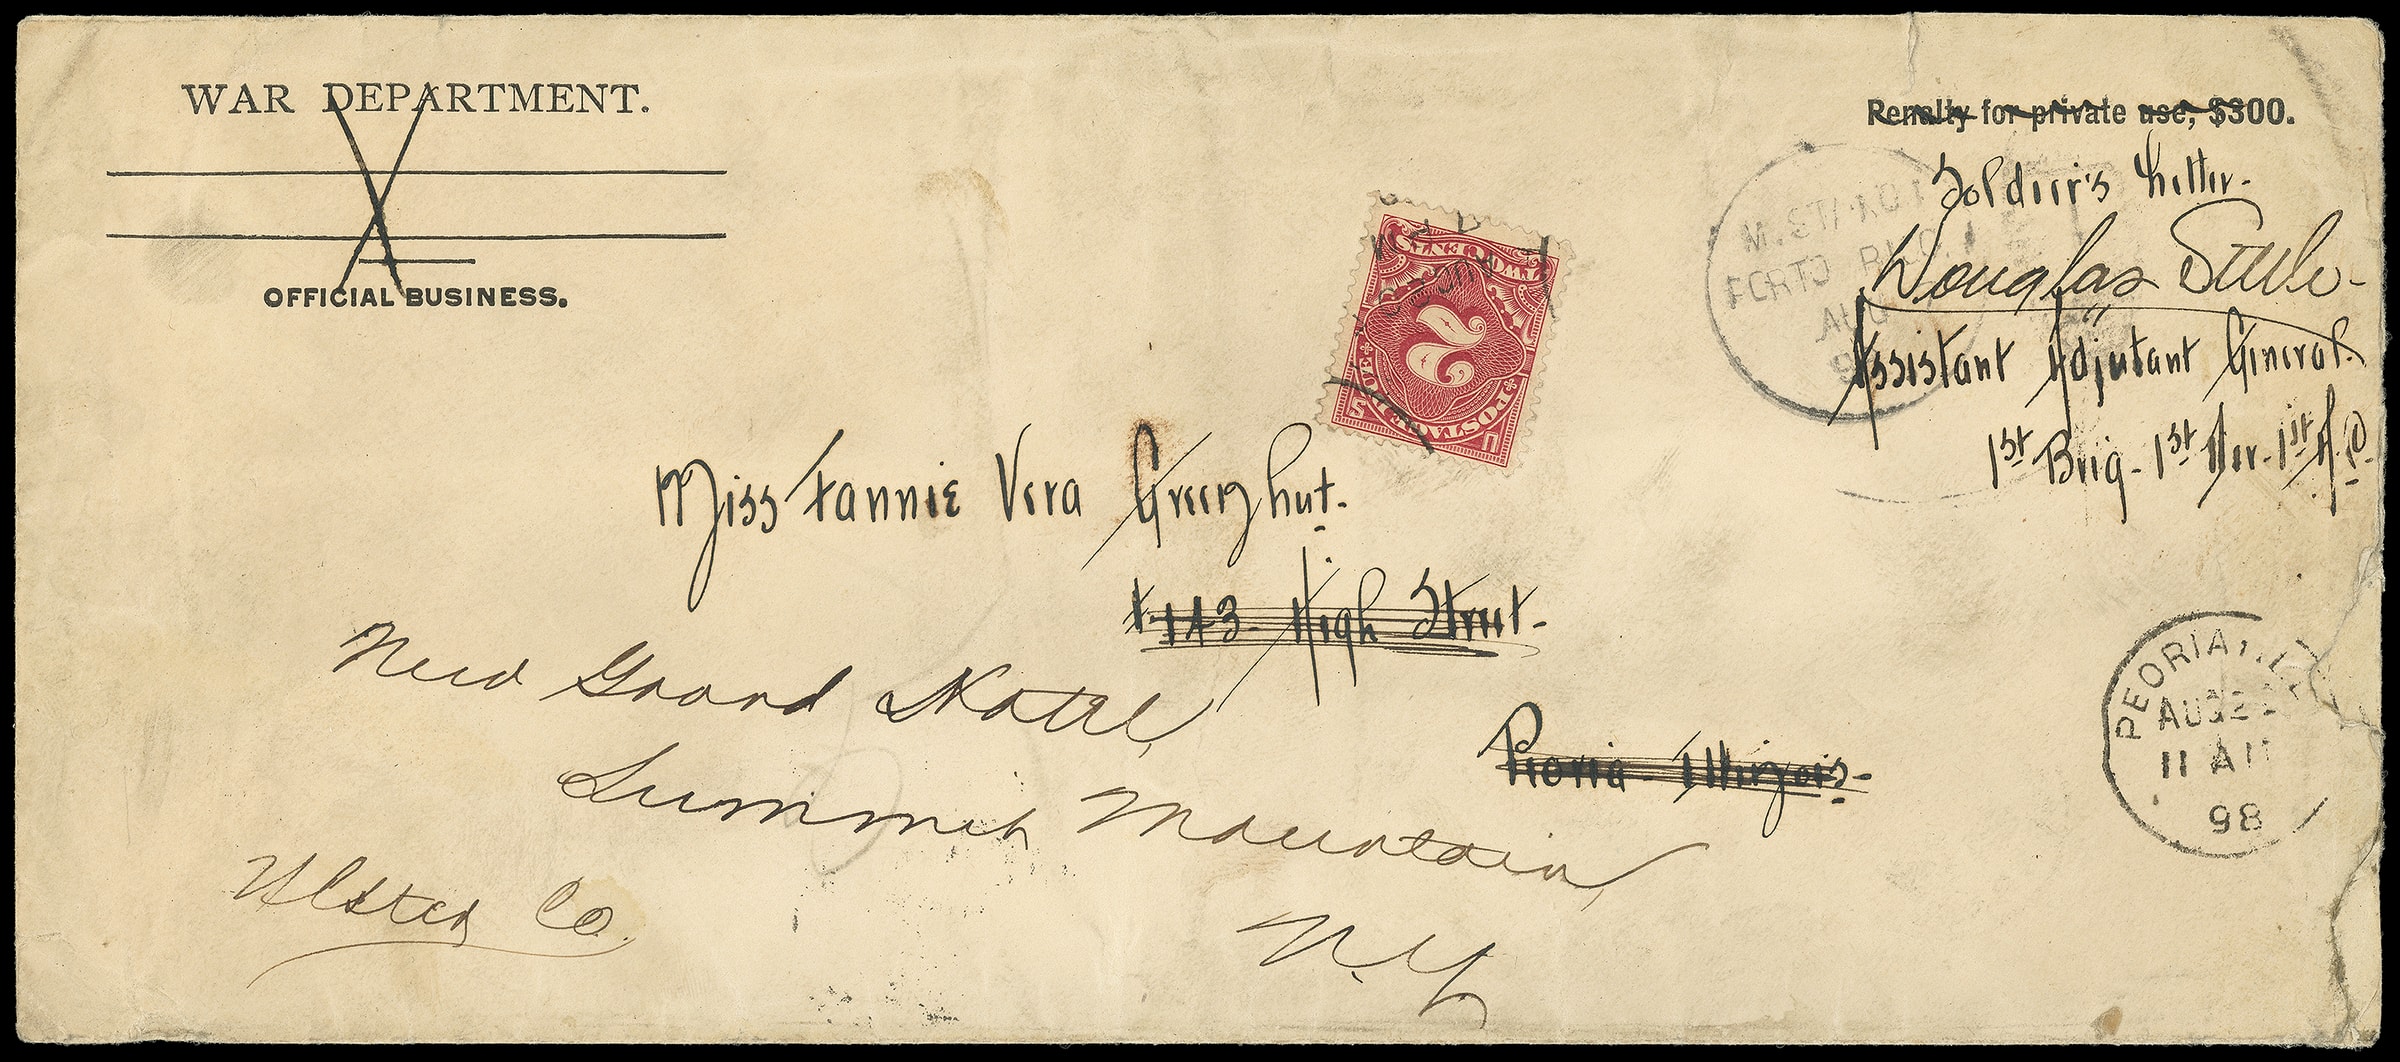 WAR DEPARTMENT.
OFFICIAL BUSINESS.
Penalty for private use, $300.
Soldier's Letter.
Douglas
Assistant Adjutant General.
1st Brig - 1st Div - 1st A.C.
M. STA. NO 1
PORTO RICO
AUG
U.S. POSTAGE DUE
2
TWO CENTS
Miss Fannie Vera Greenhut.
143 High Street.
Peoria - Illinois -
New Grand Hotel,
Summit Mountain,
Ulster Co.
N.Y.
PEORIA, ILL.
AUG
11 AM
98